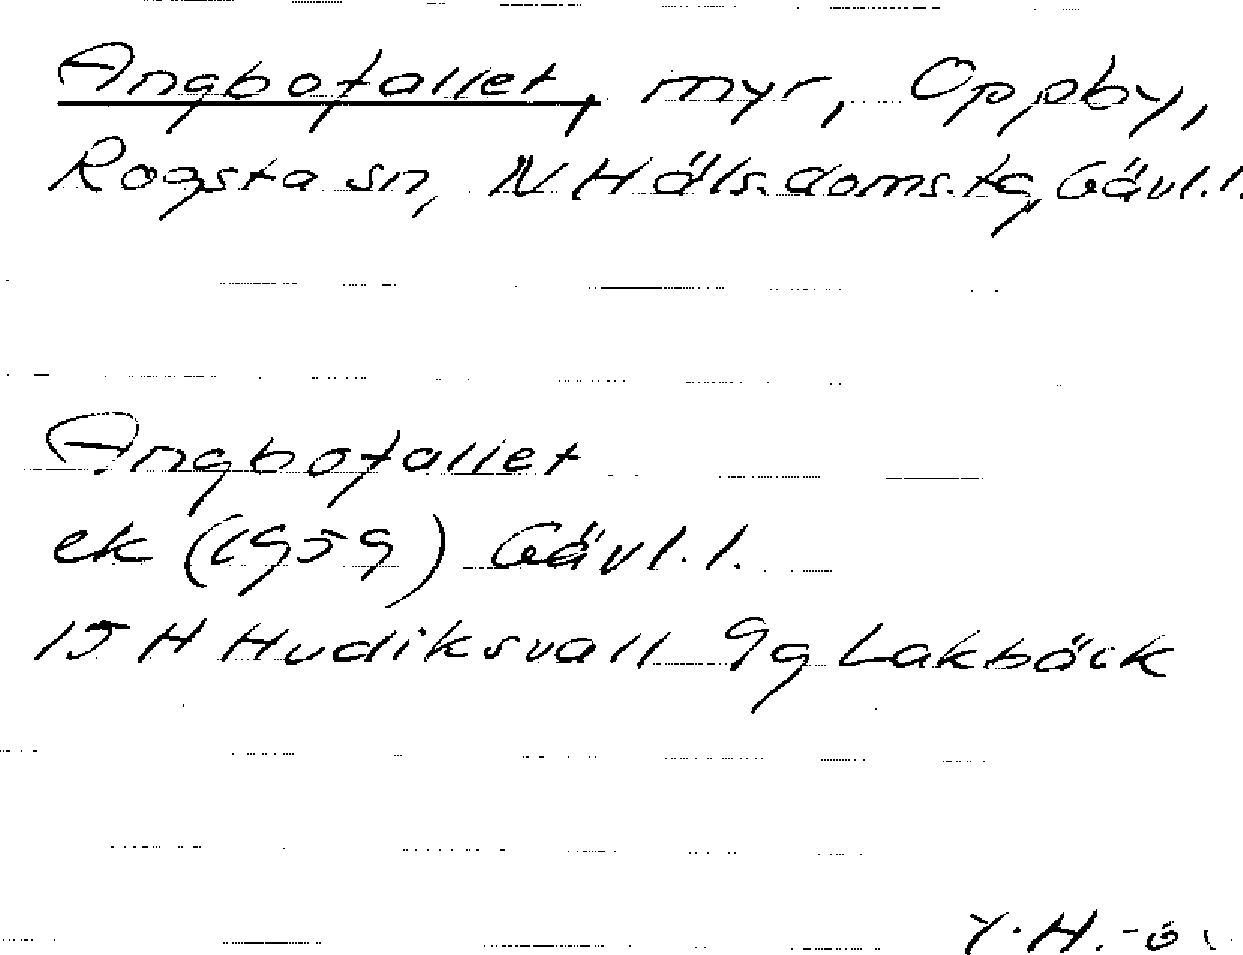 Angbofallet, myr, Oppby,
Rogsta sn, N Häls. doms. tg, Gävl. l.
Angbofallet
ek (1959) Gävl. l.
15 H Hudiksvall 9g Lakbäck
Y. H.